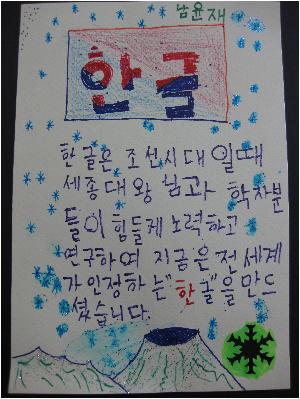 남윤재
한글
한글은 조선시대 일때
세종대왕님과 학자분
들이 힘들게 노력하고
연구하여 지금은 전세계
가 인정하는 "한글"을 만드
셨습니다.